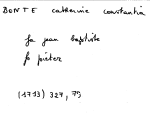 BONTE catherine constantia
fa jean baptiste
fa pieter
(1713) 327, 79